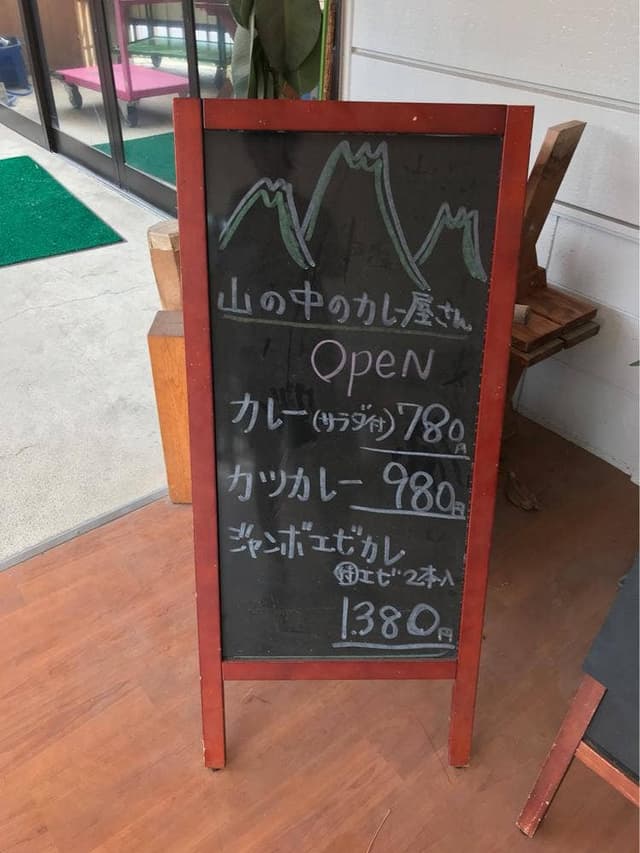 山の中のカレー屋さん
OPeN
カレー(サラダ付) 780円
カツカレー 980円
ジャンボエビカレ
付エビ2本入
1.380円